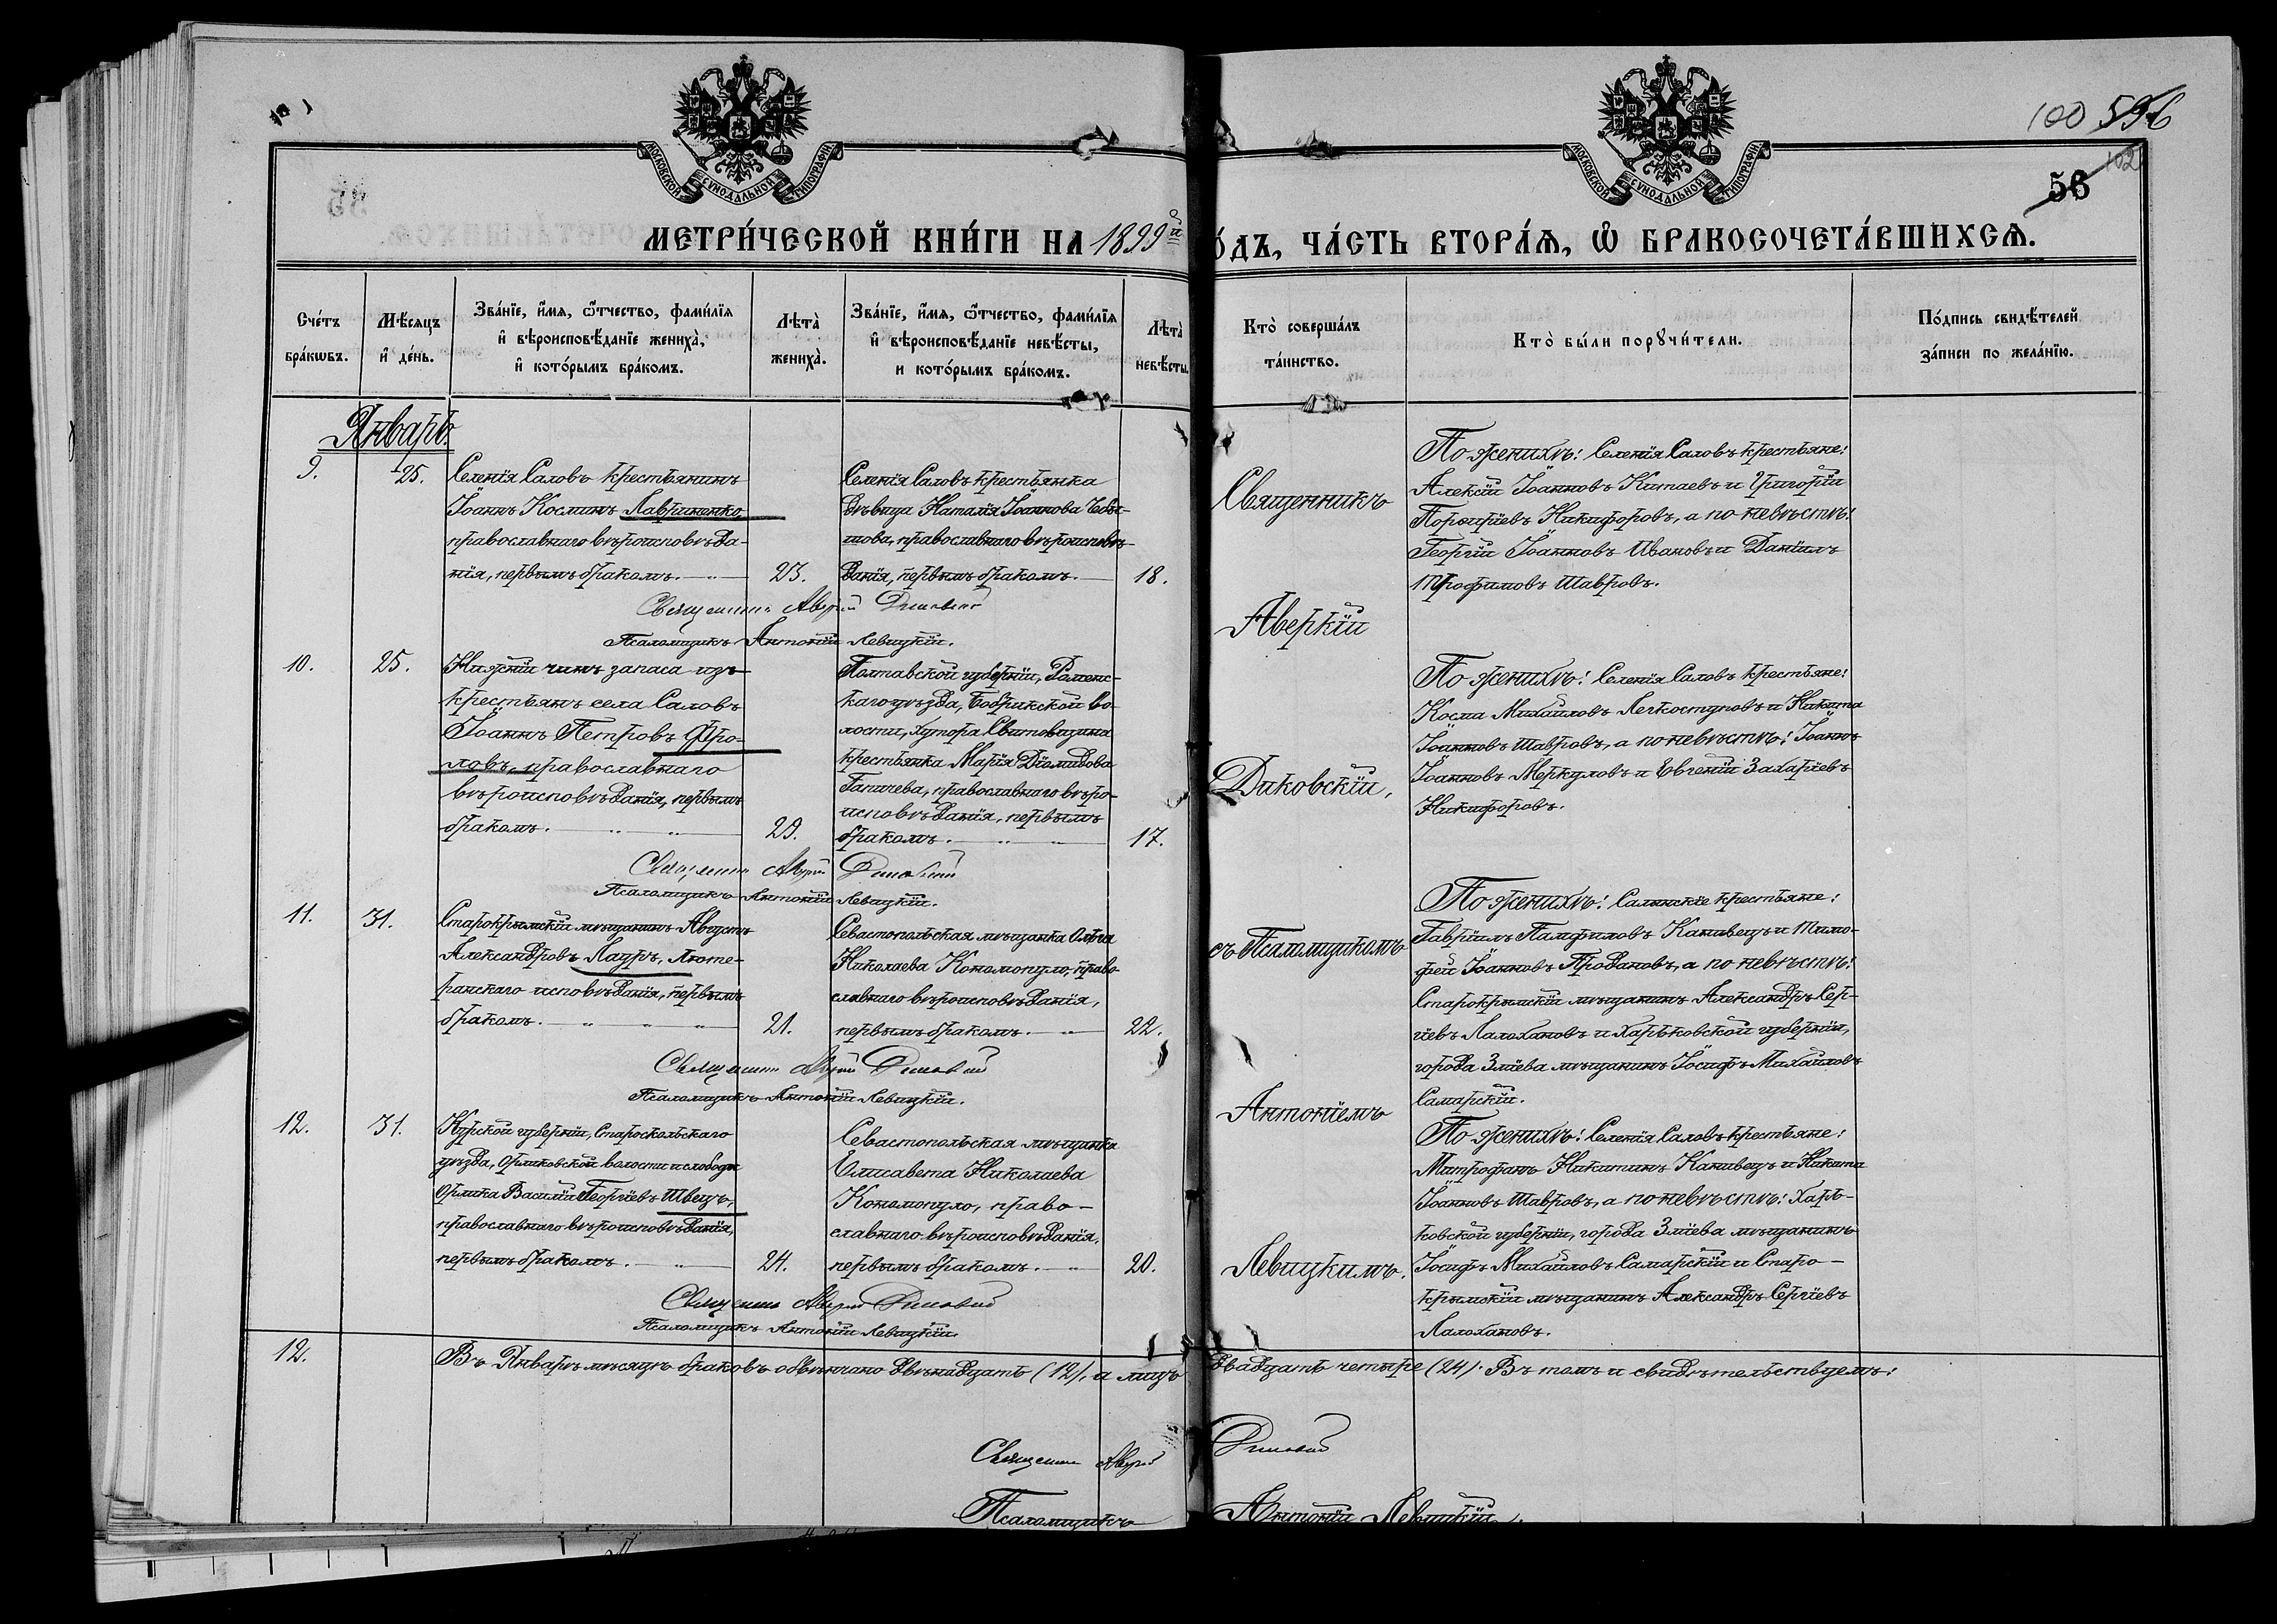 100 596
102
56
МОСКОВСКОЙ СѴНОДАЛЬНОЙ ТИПОГРАФІИ
МОСКОВСКОЙ СѴНОДАЛЬНОЙ ТИПОГРАФІИ
МЕТРИ́ЧЕСКОЙ КНИ́ГИ НА 1899й
О́ДЪ, ЧА́СТЬ ВТОРА́Ѧ, Ѽ БРАКОСОЧЕТА́ВШИХСѦ.
Сче́тъ бра́кѡвъ.
Мѣ́сяцъ и҆ де́нь.
Зва́нїе, и҆́мя, ѿ́тчество, фами́лїя
и҆ вѣроисповѣ́данїе жениха̀,
и҆ кото́рымъ бра́комъ.
Лѣта̀ жениха̀.
Зва́нїе, и҆́мя, ѿ́тчество, фами́лїя
и҆ вѣроисповѣ́данїе невѣ́сты,
и кото́рымъ бра́комъ.
Лѣта̀ невѣ́сты.
Кто̀ соверша́лъ та́инство.
Кто̀ бы́ли порꙋчи́тели.
По́дпись свидѣ́телей
за́писи по жела́нїю.
Январь.
9.
25.
Селенія Саловъ крестьянинъ
Іоаннъ Косминъ Лавриненко,
православнаго вѣроисповѣда-
нія, первымъ бракомъ. — „ —
23.
Селенія Саловъ крестьянка
дѣвица Наталія Іоаннова
православнаго вѣроисповѣ-
данія, первымъ бракомъ. —
18.
По женихѣ: Селенія Саловъ крестьяне:
Алексій Іоанновъ Китаевъ и Григорій
Порфиріевъ Никифоровъ, а по невѣстѣ:
Георгій Іоанновъ Ивановъ и Даніилъ
Трофимовъ Шавровъ.
Священникъ Аверкій Диковскій
Псаломщикъ Антоній Левицкій.
10.
25.
Нижній чинъ запаса изъ
крестьянъ села Саловъ
Іоаннъ Петровъ Фро-
ловъ, православнаго
вѣроисповѣданія, первымъ
бракомъ. — „ — „ —
29.
Полтавской губерніи, Роменс-
каго уѣзда, Бобрикской во-
лости, хутора
крестьянка Марія Діомидова
Ганичева, православнаго вѣро-
исповѣданія, первымъ
бракомъ. — „ — „ —
17.
По женихѣ: Селенія Саловъ крестьяне:
Косма Михаиловъ Легкоступовъ и Никита
Іоанновъ Шавровъ, а по невѣстѣ: Іоаннъ
Іоанновъ Меркуловъ и Евгеній Захаріевъ
Никифоровъ.
Священникъ Аверкій Диковскій
Псаломщикъ Антоній Левицкій.
11.
31.
Старокрымскій мѣщанинъ Августъ
Александровъ Лауръ, люте-
ранскаго исповѣданія, первымъ
бракомъ. — „ — „ — „ —
21.
Севастопольская мѣщанка Ольга
Николаева Кономопуло, право-
славнаго вѣроисповѣданія,
первымъ бракомъ. — „ —
22.
По женихѣ: Салынскіе крестьяне:
Гавріилъ Памфиловъ Канивецъ и Тимо-
фей Іоанновъ Продановъ, а по невѣстѣ:
Старокрымскій мѣщанинъ Александръ Сер-
гіевъ Малохановъ и Харьковской губерніи,
города Зміева мѣщанинъ Іосифъ Михаиловъ
Самарскій.
Священникъ Аверкій Диковскій
Псаломщикъ Антоній Левицкій.
12.
31.
Курской губерніи, Старооскольскаго
уѣзда, Орликовской волости и слободы
Орлика Василій Георгіевъ Швецъ,
православнаго вѣроисповѣданія,
первымъ бракомъ. — „ —
24.
Севастопольская мѣщанка
Елисавета Николаева
Кономопуло, право-
славнаго вѣроисповѣданія,
первымъ бракомъ. — „ —
20.
По женихѣ: Селенія Саловъ крестьяне:
Митрофанъ Никитинъ Канивецъ и Никита
Іоанновъ Шавровъ, а по невѣстѣ: Харь-
ковской губерніи, города Зміева мѣщанинъ
Іосифъ Михаиловъ Самарскій и Старо-
крымскій мѣщанинъ Александръ Сергіевъ
Малохановъ.
Священникъ Аверкій Диковскій
Псаломщикъ Антоній Левицкій.
Священникъ
Аверкій
Диковскій,
съ Псаломщикомъ
Антоніемъ
Левицкимъ.
12.
Въ Январѣ мѣсяцѣ браковъ обвѣнчано двѣнадцать (12), а лицъ двадцать четыре (24). Въ томъ и свидѣтельствуемъ:
Священникъ Аверкій Диковскій
Псаломщикъ Антоній Левицкій.